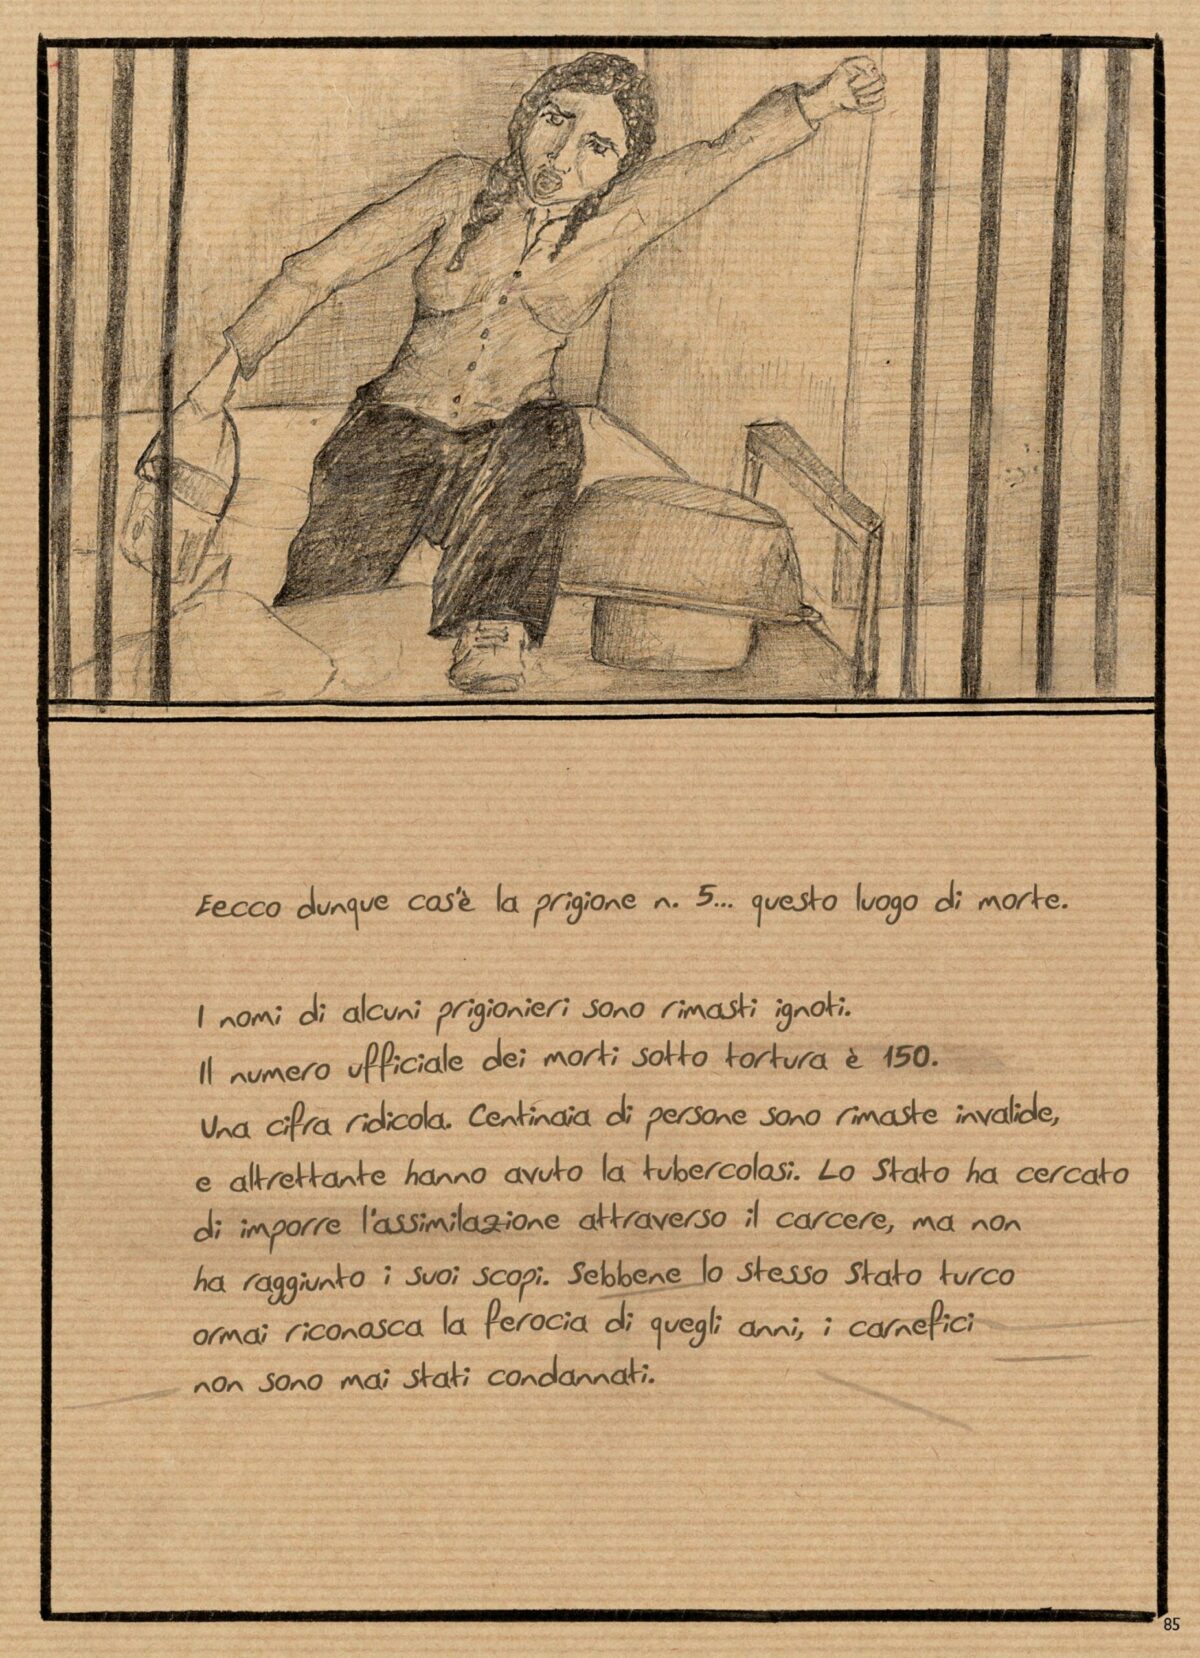 Eecco dunque cos'è la prigione n. 5... questo luogo di morte.
I nomi di alcuni prigionieri sono rimasti ignoti.
Il numero ufficiale dei morti sotto tortura è 150.
Una cifra ridicola. Centinaia di persone sono rimaste invalide,
e altrettante hanno avuto la tubercolosi. Lo Stato ha cercato
di imporre l'assimilazione attraverso il carcere, ma non
ha raggiunto i suoi scopi. Sebbene lo stesso Stato turco
ormai riconosca la ferocia di quegli anni, i carnefici
non sono mai stati condannati.
85